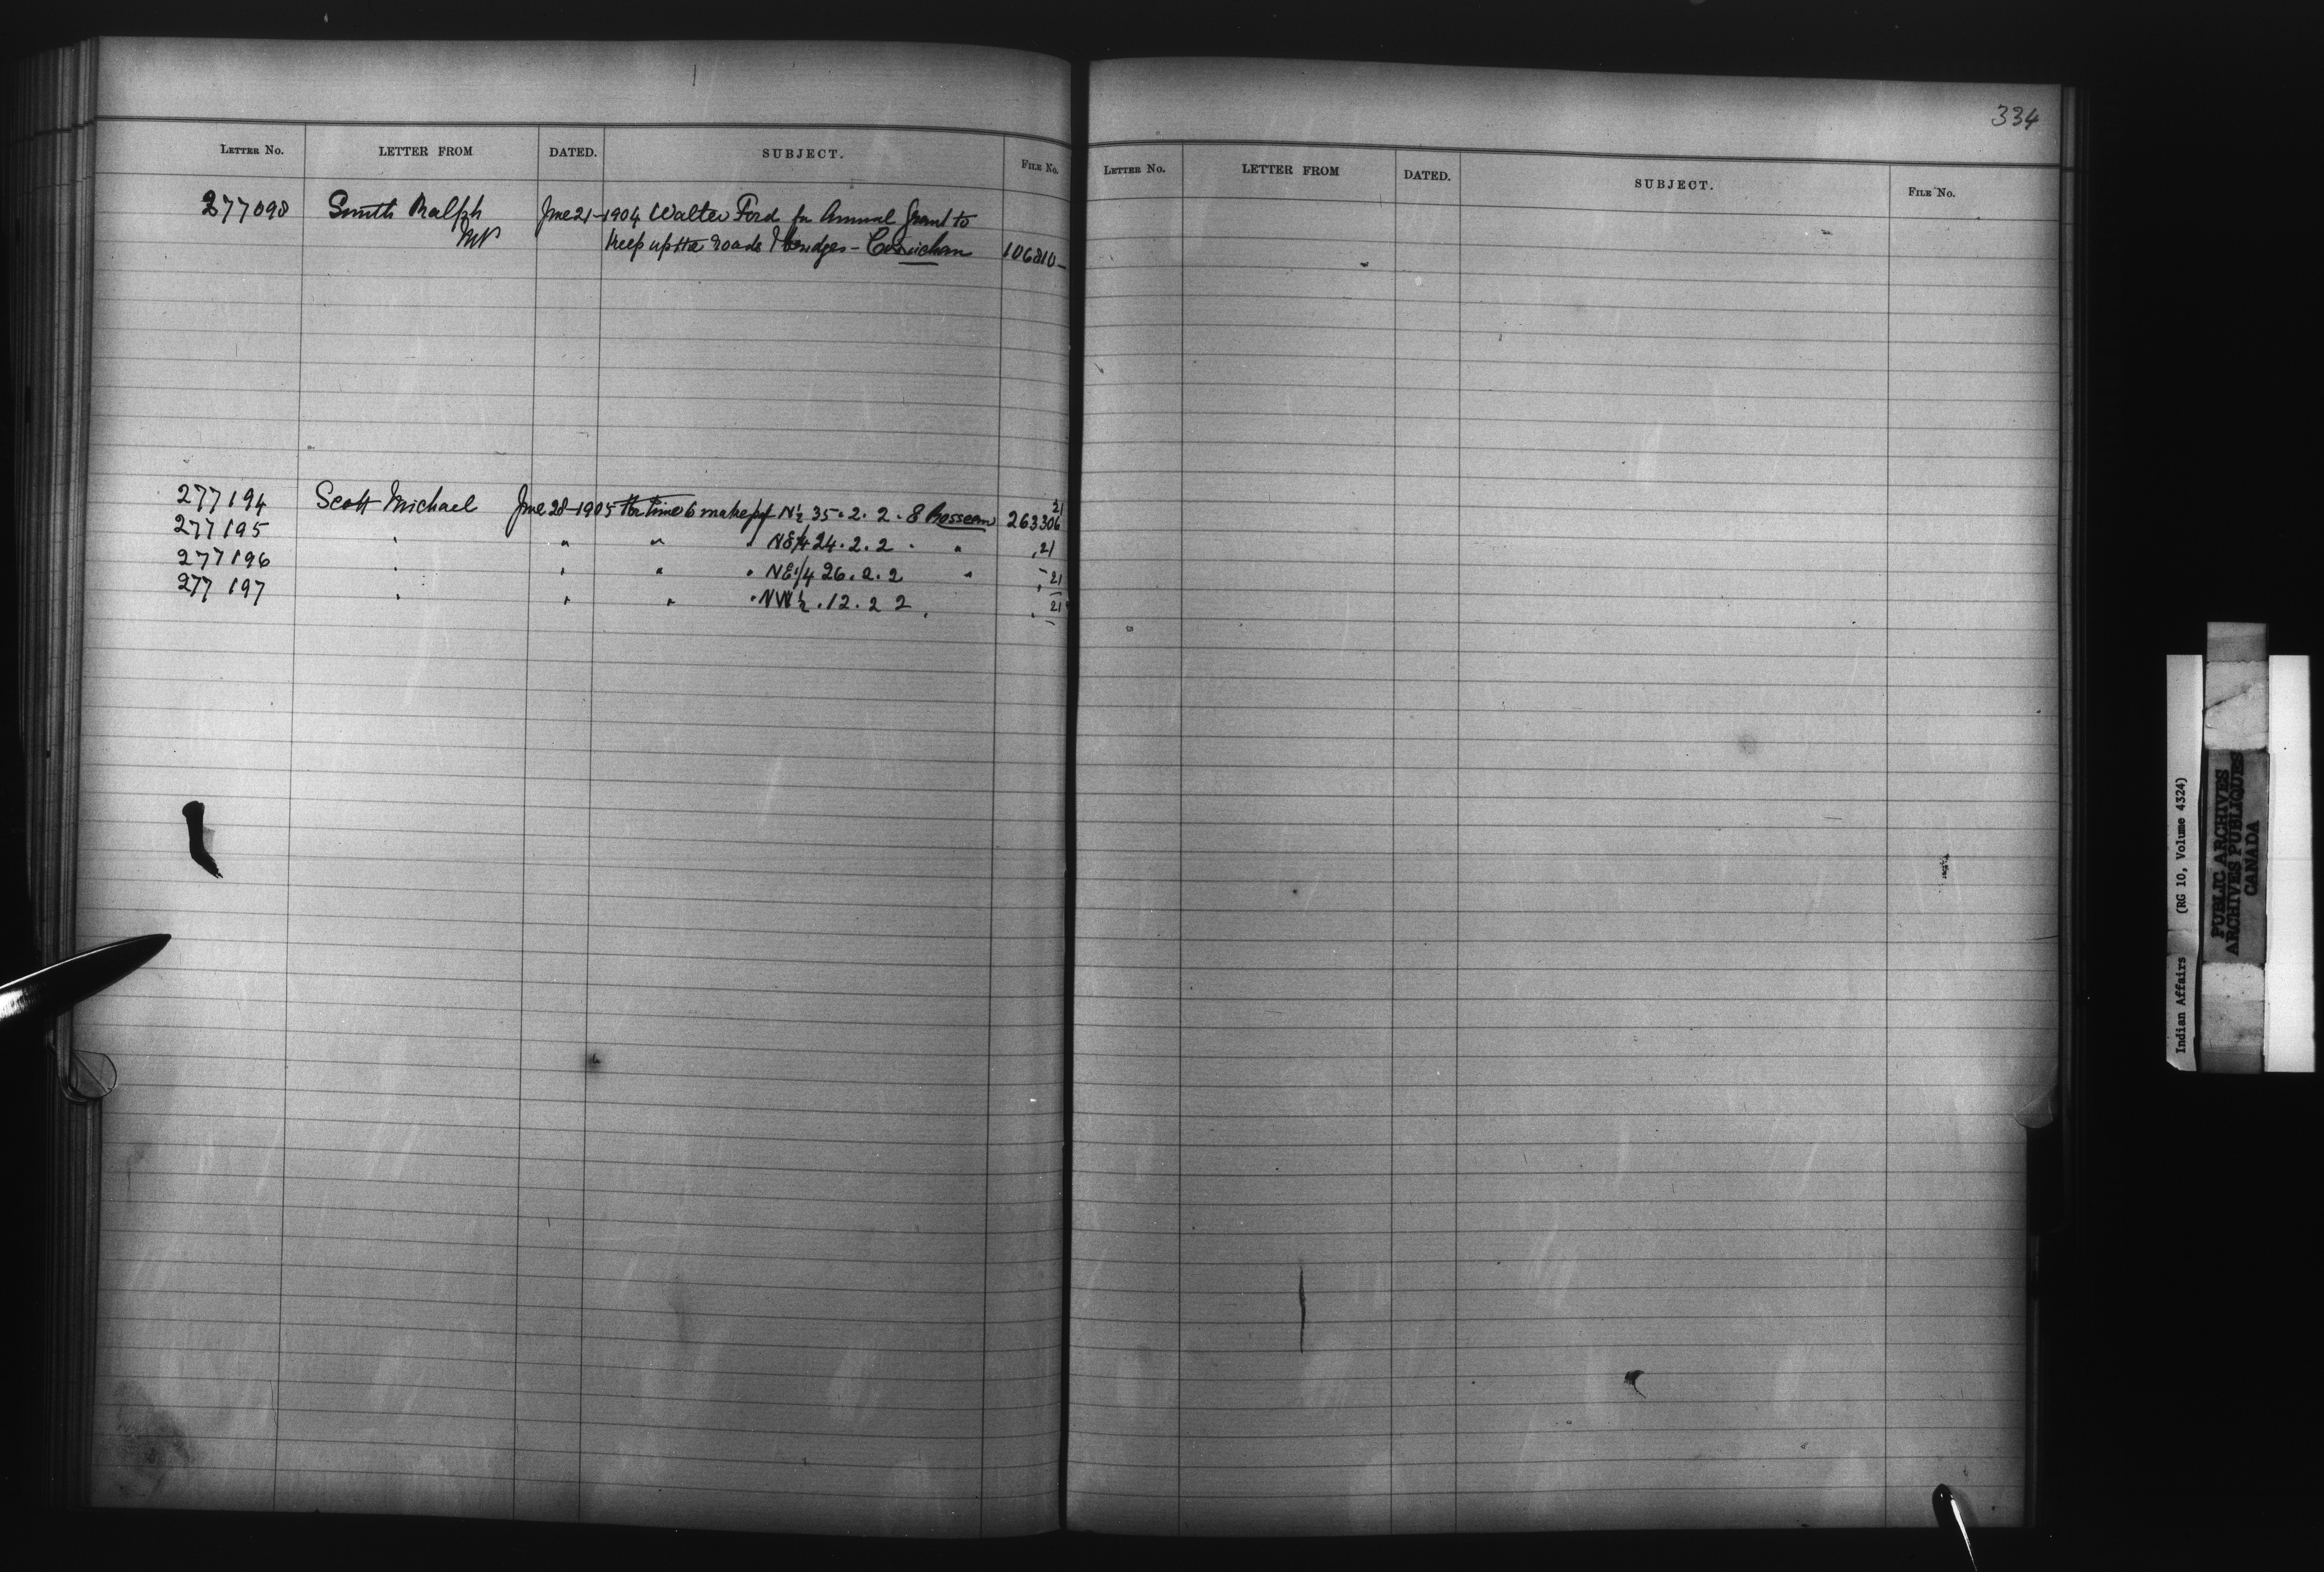 334
LETTER No. LETTER FROM DATED. SUBJECT. FILE No.
LETTER No. LETTER FROM DATED. SUBJECT. FILE No.
277098 Smith Ralph June 21-1904 Walter Ford for Annual Grant to
MP Keep up the roads & bridges - Cowichan 106810-
277194 Scott Michael June 28-1905 for time to make pt N½ 35.2.2.8 Rosseau 263306 21
277195 " " " " NE¼ 24.2.2 . " " 21
277196 " " " " NE1/4 26.2.2 " " 21
277197 " " " " NW½.12.2 2 " " 21
Indian Affairs (RG 10, Volume 4324)
PUBLIC ARCHIVES
ARCHIVES PUBLIQUES
CANADA